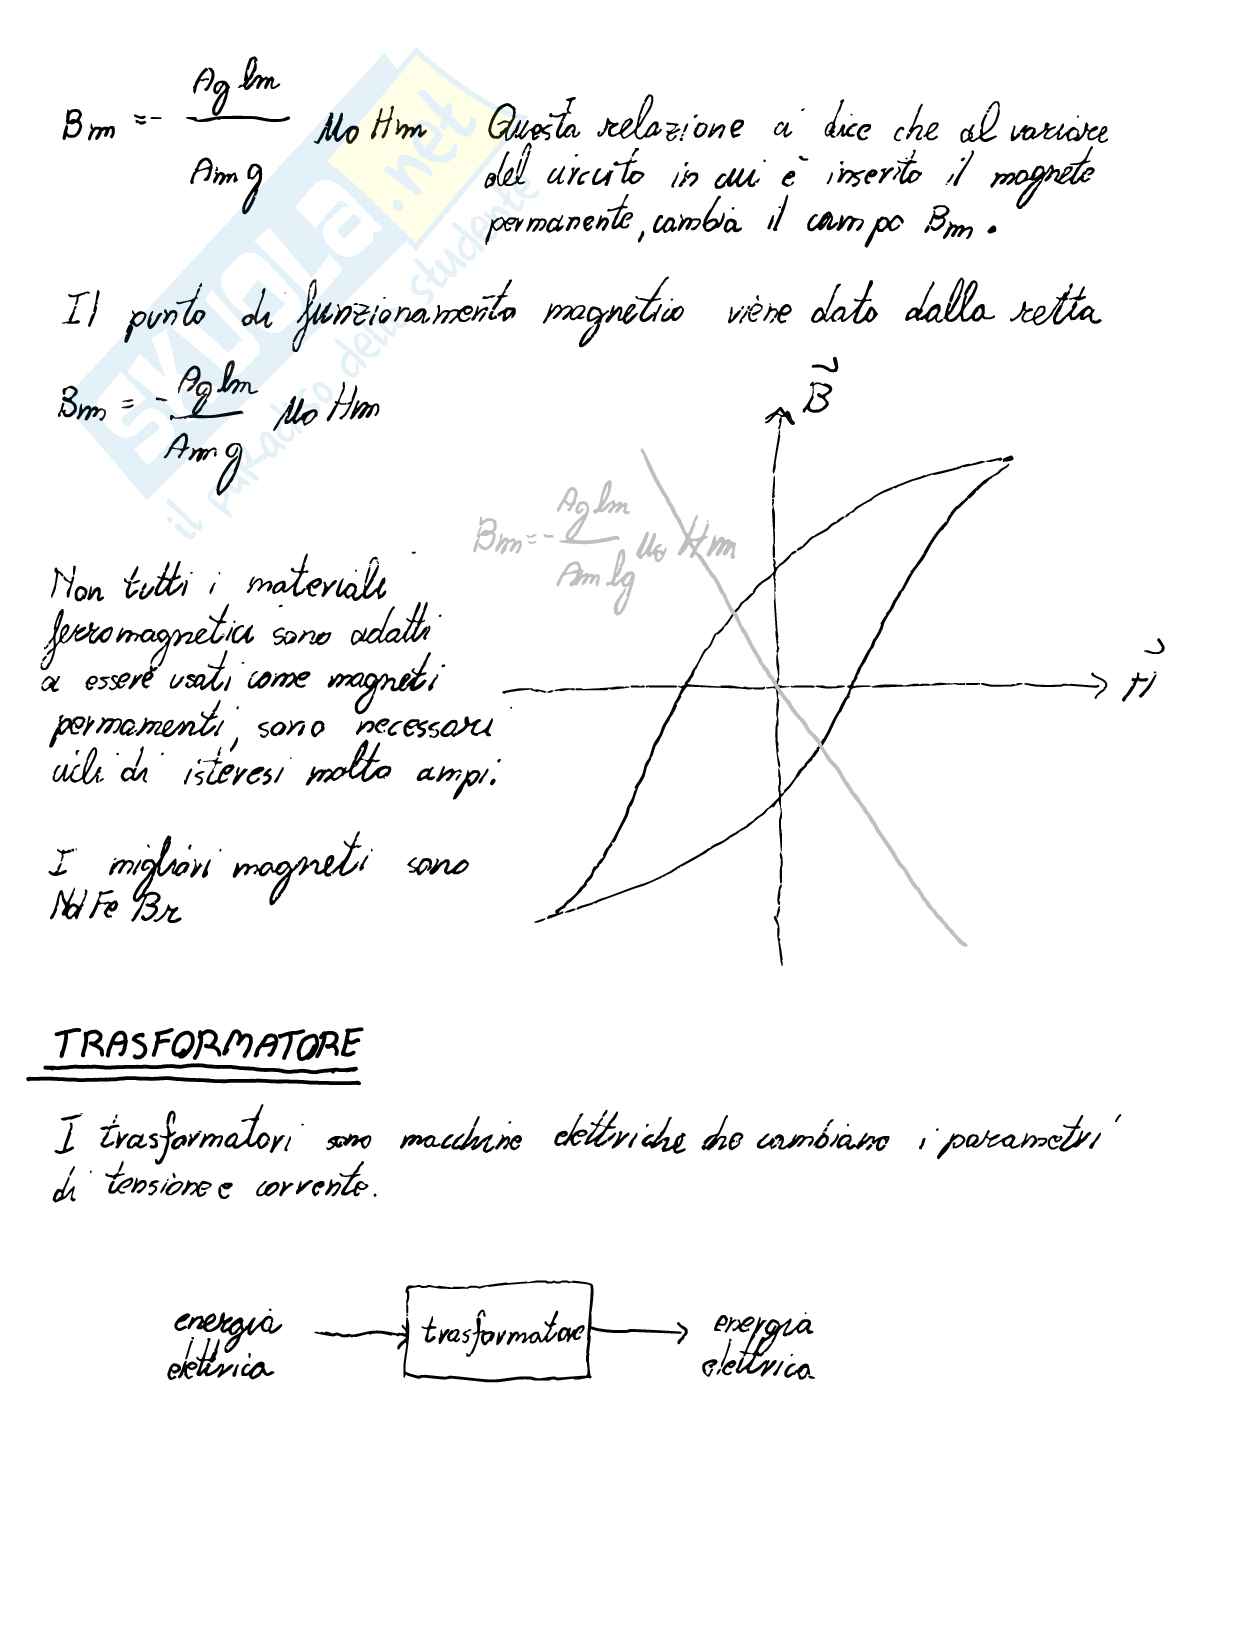 Bm = - Ag lm / Am g μo Hm
Questa relazione ci dice che al variare
del circuito in cui è inserito il magnete
permanente, cambia il campo Bm.
Il punto di funzionamento magnetico viene dato dalla retta
Bm = - Ag lm / Am g μo Hm
B
Bm = - Ag lm / Am lg μo Hm
H
Non tutti i materiali
ferromagnetici sono adatti
a essere usati come magneti
permamenti, sono necessari
cicli di isteresi molto ampi.
I migliori magneti sono
Nd Fe Br
TRASFORMATORE
I trasformatori sono macchine elettriche che cambiano i parametri
di tensione e corrente.
energia
elettrica
trasformatore
energia
elettrica
SKUOLA.net
il paradiso dello studente